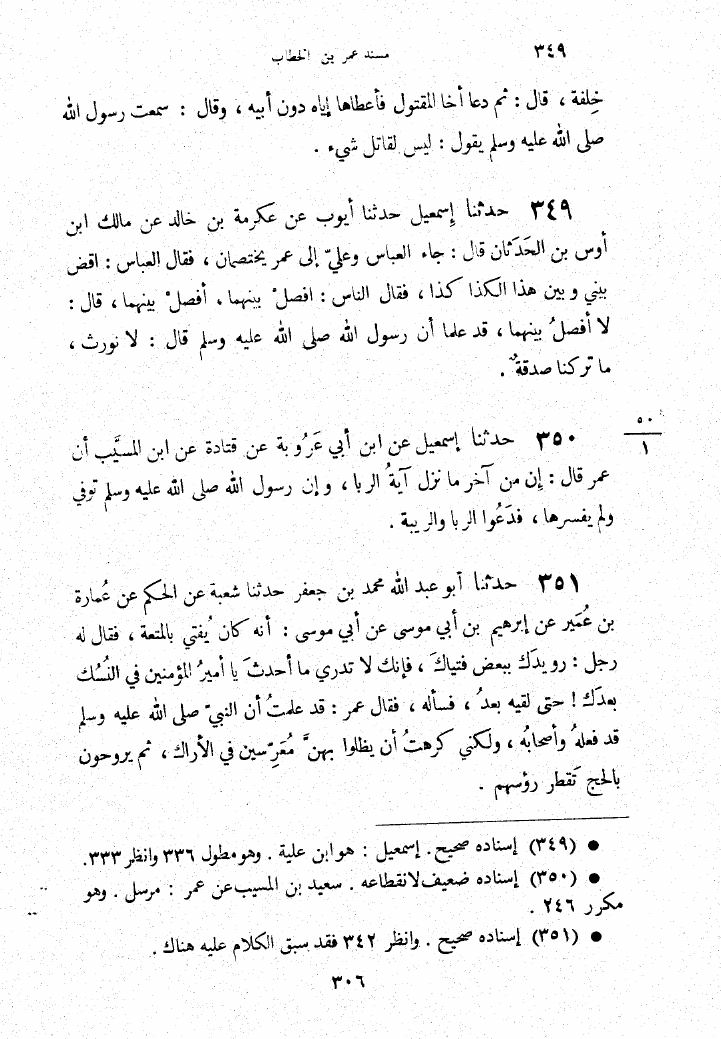 ٣٤٩
مسند عمر بن الخطاب
خِلفة ، قال : ثم دعا أخا المقتول فأعطاها إياه دون أبيه ، وقال : سمعت رسول الله
صلى الله عليه وسلم يقول : ليس لقاتل شيء .
٣٤٩ حدثنا إسمعيل حدثنا أيوب عن عكرمة بن خالد عن مالك ابن
أوس بن الحَدَثان قال : جاء العباس وعليّ إلى عمر يختصمان ، فقال العباس : اقض
بيني وبين هذا الكذا كذا ، فقال الناس : افصلْ بينهما ، أفصلْ بينهما ، قال :
لا أفصلُ بينهما ، قد علما أن رسول الله صلى الله عليه وسلم قال : لا نورث ،
ما تركنا صدقةٌ .
٥٠
١
٣٥٠ حدثنا إسمعيل عن ابن أبي عَرُوبة عن قتادة عن ابن المسيَّب أن
عمر قال : إن من آخر ما نزل آيةُ الربا ، وإن رسول الله صلى الله عليه وسلم توفي
ولم يفسرها ، فدَعُوا الربا والريبة .
٣٥١ حدثنا أبو عبد الله محمد بن جعفر حدثنا شعبة عن الحكم عن عُمارة
بن عُمَير عن إبرهيم بن أبي موسى عن أبي موسى : أنه كان يُفتي بالمتعة ، فقال له
رجل : رويدَك ببعض فتياكَ ، فإنك لا تدري ما أحدثَ يا أميرُ المؤمنين في النُسُك
بعدَك ! حتى لقيه بعدُ ، فسأله ، فقال عمر : قد علمتُ أن النبيّ صلى الله عليه وسلم
قد فعلهُ وأصحابُه ، ولكني كرهتُ أن يظلوا بهنَّ مُعَرِّسين في الأراك ، ثم يروحون
بالحج تَقطر رؤسهم .
● (٣٤٩) إسناده صحيح . إسمعيل : هو ابن علية . وهو مطول ٣٣٦ وانظر ٣٣٣.
● (٣٥٠) إسناده ضعيف لانقطاعه . سعيد بن المسيب عن عمر : مرسل . وهو
مكرر ٢٤٦ .
● (٣٥١) إسناده صحيح . وانظر ٣٤٢ فقد سبق الكلام عليه هناك .
٣٠٦